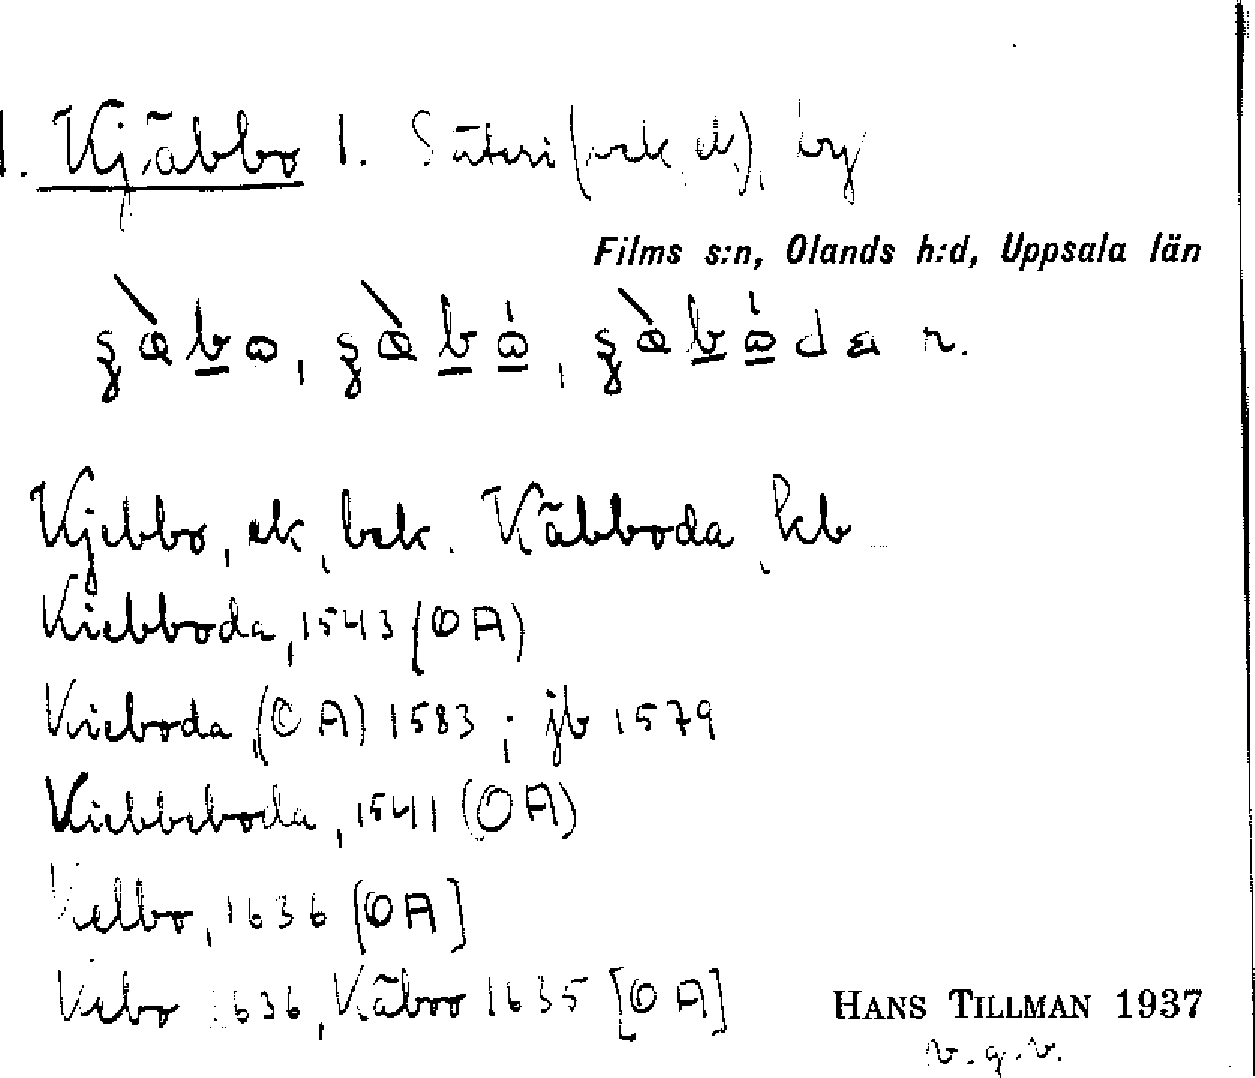 1. Kjäbbo 1. Säteri ( ), by
Films s:n, Olands h:d, Uppsala län
Kjebbo, ek, bek. Käbboda, hb
Kiebboda, 1543 (OA)
Kieboda, (OA) 1583; jb 1579
Kiebbeboda, 1541 (OA)
Kelbo, 1636 [OA]
Kebo 1636, Käboo 1635 [OA]
HANS TILLMAN 1937
v.g.v.